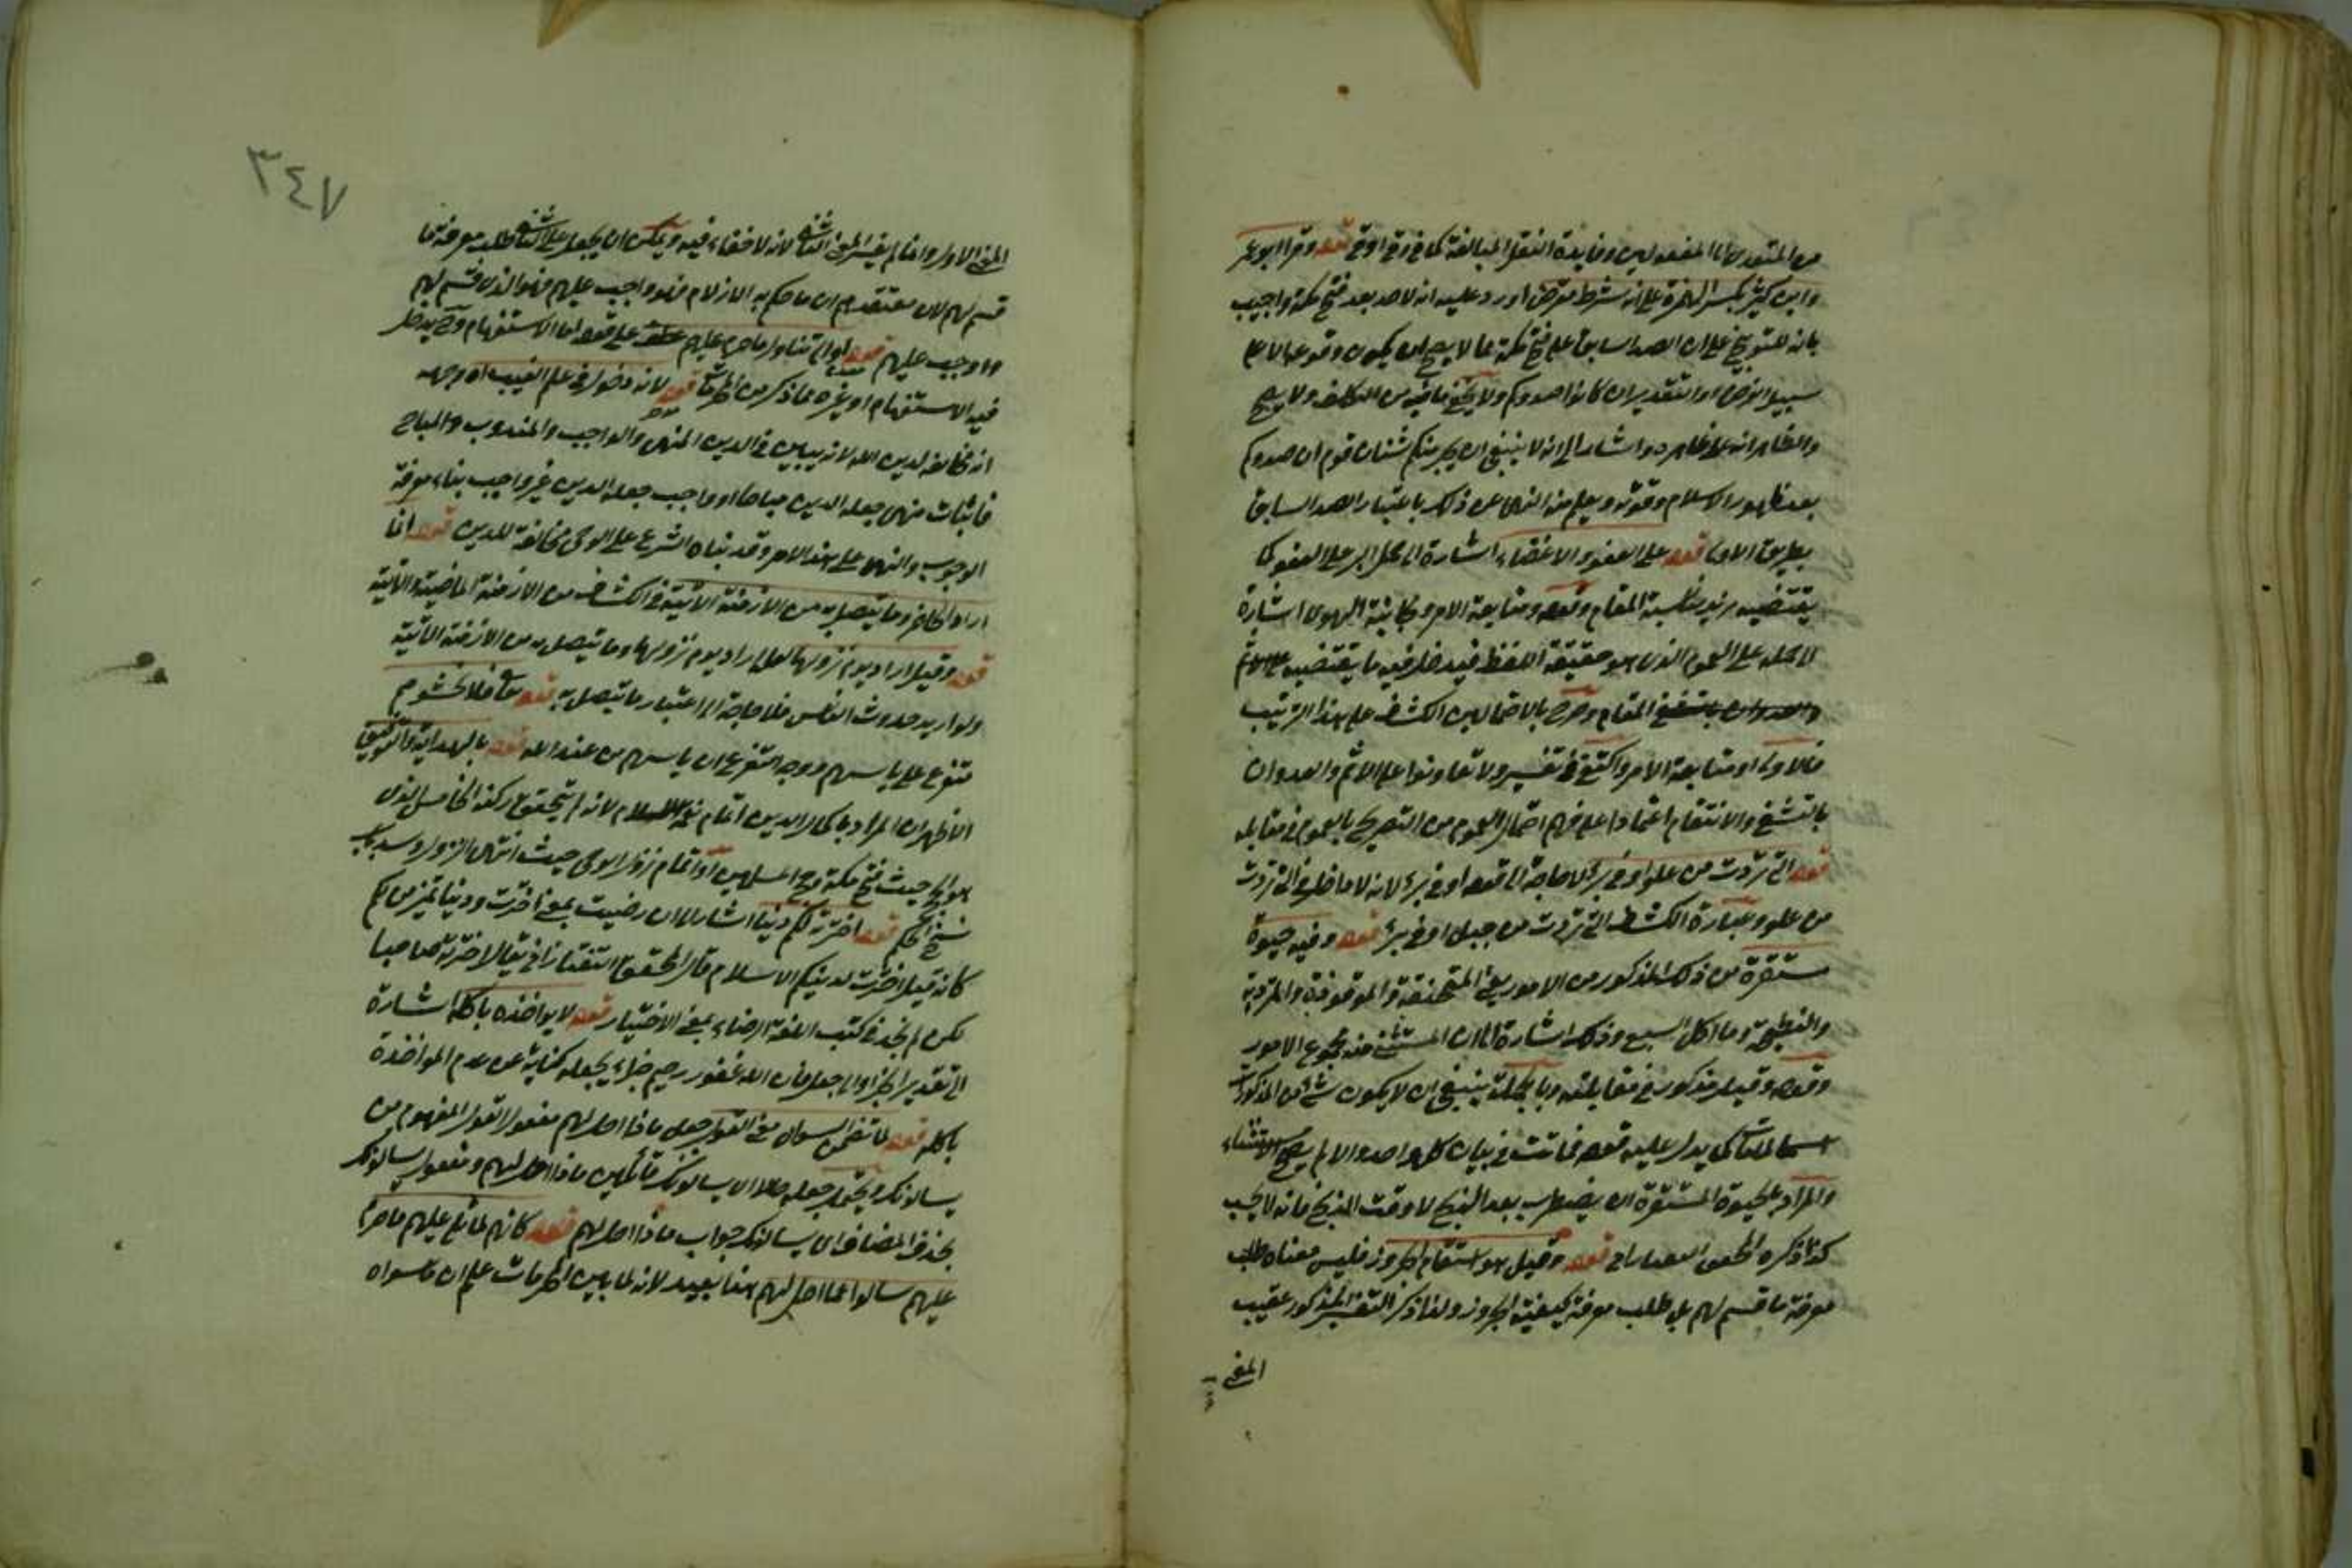 من المتعدي الى المفعولين وفايدة النقل المبالغة كما في وقى اوقى قوله وقرا ابو عمر
وابن كثير بكسر الهمزة على انه شرط معترض اورد عليه انه لا صد بعد فتح مكة واجيب
بانه للتوبيخ على ان الصد السابق على فتح مكة مما لا يصح ان يكون وقوعه الا على
سبيل الفرض او التقدير ان كانوا صدوكم ولا يخفى ما فيه من التكلف ولا يصح
والظاهر انه على ظاهره واشار الى انه لا ينبغي ان يجرمنكم شنان قوم ان صدوكم
بعد ظهور الاسلام وقوته ويعلم منه النهي عن ذلك باعتبار الصد السابق
بطريق الاولى قوله على العفو والاغضاء اشارة الى حمل البر على العفو كما
يقتضيه مناسبة المقام وقوله ومتابعة الامر ومجانبة الهوى اشارة
الى حمله على العموم الذي هو حقيقة اللفظ فيدخل فيه ما يقتضيه
المقام وصرح بالاحتمالين الكشاف على هذا الترتيب
فالاولى او متابعة الامر واكتفى في تفسير ولا تعاونوا على الاثم والعدوان
بالتشفي والانتقام اعتمادا على فهم احتمال العموم من التصريح بالعموم في مقابله
قوله التي تردت من علو او في بئر لا حاجة الى قوله او في بئر لانه داخل في التي تردت
من علو وعبارة الكشاف التي تردت من جبل او في بئر قوله وفيه حيوة
مستقرة من ذلك المذكور من الامور يعني المنخنقة والموقوذة والمتردية
والنطيحة وما اكل السبع وذلك اشارة الى ان المستثنى منه مجموع الامور
وقوله وقيل مذكور في مقابلته وبالجملة ينبغي ان لا يكون شئ من المذكورات
كما يدل عليه قوله فماتت في بيان كل واحد والا لم يصح الاستثناء
والمراد بالحيوة المستقرة ان يضطرب بعد الذبح لا وقت الذبح فانه لا يجب
كذا ذكره المحقق التفتازاني قوله وقيل هو استقسام الجزور فليس معناه طلب
معرفة ما قسم لهم بل طلب معرفة كيفية الجزور ولذا ذكر التفسير المذكور عقيب
المعنى
٣٤٧
المعنى الاول وانما لم يفسر المعنى الثاني لانه لا خفاء فيه ويمكن ان يحمل على الثاني طلب معرفة ما
قسم لهم لان معتقدهم ان ما حكم به الازلام فهو واجب عليهم فهو الذي قسم لهم
واوجب عليهم قوله او الى تناول ما حرم عليهم عطف على قوله الى الاستقسام وح يدخل
فيه الاستقسام او غيره مما ذكر من المحرمات قوله لانه دخول في علم الغيب او وجهه
انه مخالف لدين الله لانه يبين في الدين المنهي والواجب والمندوب والمباح
فاثبات منهي جعله الدين مباحا او واجب جعله الدين غير واجب بناء معرفة
الوجوب والنهي على هذا الامر وقد بناه الشرع على الوحي مخالفة للدين قوله انما
اراد الحاضر وما يتصل به من الازمنة الاتية في الكشاف من الازمنة الماضية والاتية
قوله وقيل اراد يوم نزولها لعله اراد يوم نزولها وما يتصل به من الازمنة الاتية
ولو اريد حدوث الياس فلا حاجة الى اعتبار ما يتصل به قوله تع فلا تخشوهم
متفرع على ياسهم ووجه التفرع ان ياسهم من عند الله قوله بالهداية والتوفيق
الاظهر ان المراد باكمال الدين اتمام الاسلام لانه لم يتحقق ركنه الخامس الذي
هو الحج حيث فتح مكة وحج المسلمين او اتمام نزول الوحي حيث انتهى النزول وسد باب
نسخ الحكم قوله اخترته لكم دينا اشار الى ان رضيت بمعنى اخترت ودينا تمييز من لكم
كانه قيل اخترت لدينكم الاسلام قال المحقق التفتازاني يقال اخترته صاحبا
لكن لم نجد في كتب اللغة الرضاء بمعنى الاختيار قوله لا يواخذه باكله اشارة
الى تقدير الجزاء او الى جعل فان الله غفور رحيم جزاء بجعله كناية عن عدم المواخذة
باكله قوله لما تضمن السوال معنى القول جعل ماذا احل لهم مفعول القول المفهوم من
يسالونك ويحتمل جعله حالا اي يسالونك قائلين ماذا احل لهم ومفعول يسالونك
بحذف المضاف اي يسالونك جواب ماذا احل لهم قوله كانهم لما تلى عليهم ما حرم
عليهم سالوا عما احل لهم هذا بعيد لانه لما بين المحرمات علم ان ما سواه